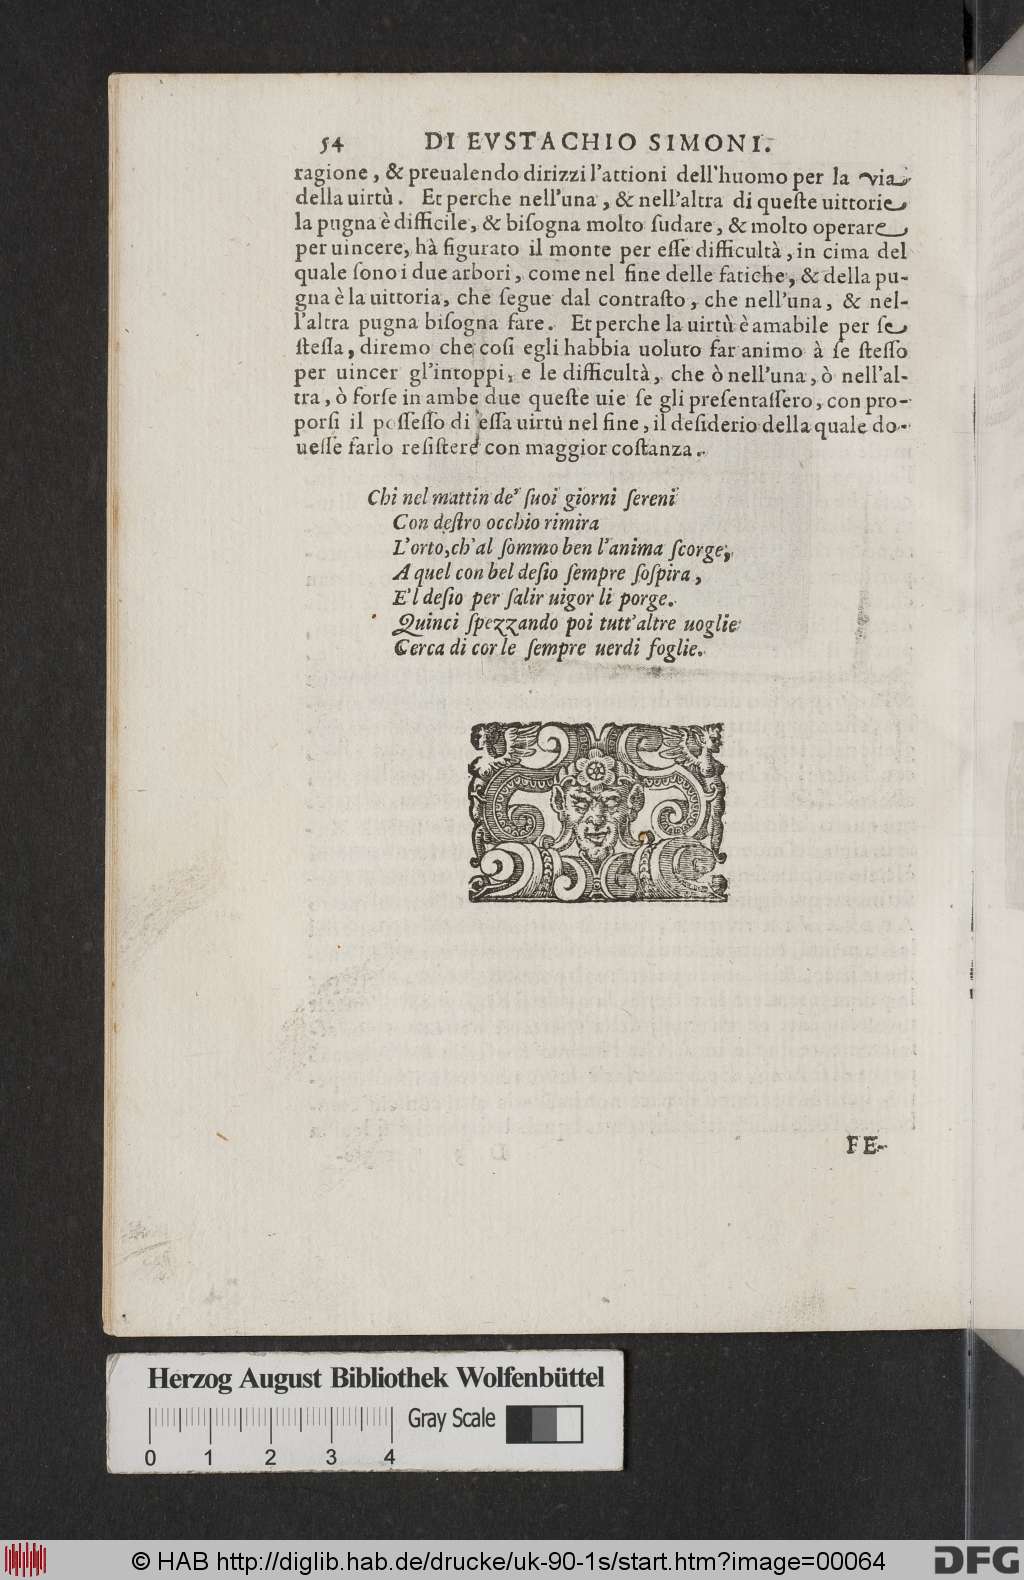 54 DI EVSTACHIO SIMONI.
ragione, & preualendo dirizzi l'attioni dell'huomo per la via
della uirtù. Et perche nell'una, & nell'altra di queſte uittorie
la pugna è difficile, & biſogna molto ſudare, & molto operare
per uincere, hà figurato il monte per eſſe difficultà, in cima del
quale ſono i due arbori, come nel fine delle fatiche, & della pu-
gna è la uittoria, che ſegue dal contraſto, che nell'una, & nel-
l'altra pugna biſogna fare. Et perche la uirtù è amabile per ſe
ſteſſa, diremo che coſi egli habbia uoluto far animo à ſe ſteſſo
per uincer gl'intoppi, e le difficultà, che ò nell'una, ò nell'al-
tra, ò forſe in ambe due queſte uie ſe gli preſentaſſero, con pro-
porſi il poſſeſſo di eſſa uirtù nel fine, il deſiderio della quale do-
ueſſe farlo reſiſtere con maggior coſtanza.
Chi nel mattin de' ſuoi giorni ſereni
Con deſtro occhio rimira
L'orto, ch'al ſommo ben l'anima ſcorge,
A quel con bel deſio ſempre ſoſpira,
E'l deſio per ſalir uigor li porge.
Quinci ſpezzando poi tutt'altre uoglie
Cerca di cor le ſempre uerdi foglie.
FE-
Herzog August Bibliothek Wolfenbüttel
Gray Scale
0 1 2 3 4
© HAB http://diglib.hab.de/drucke/uk-90-1s/start.htm?image=00064
DFG